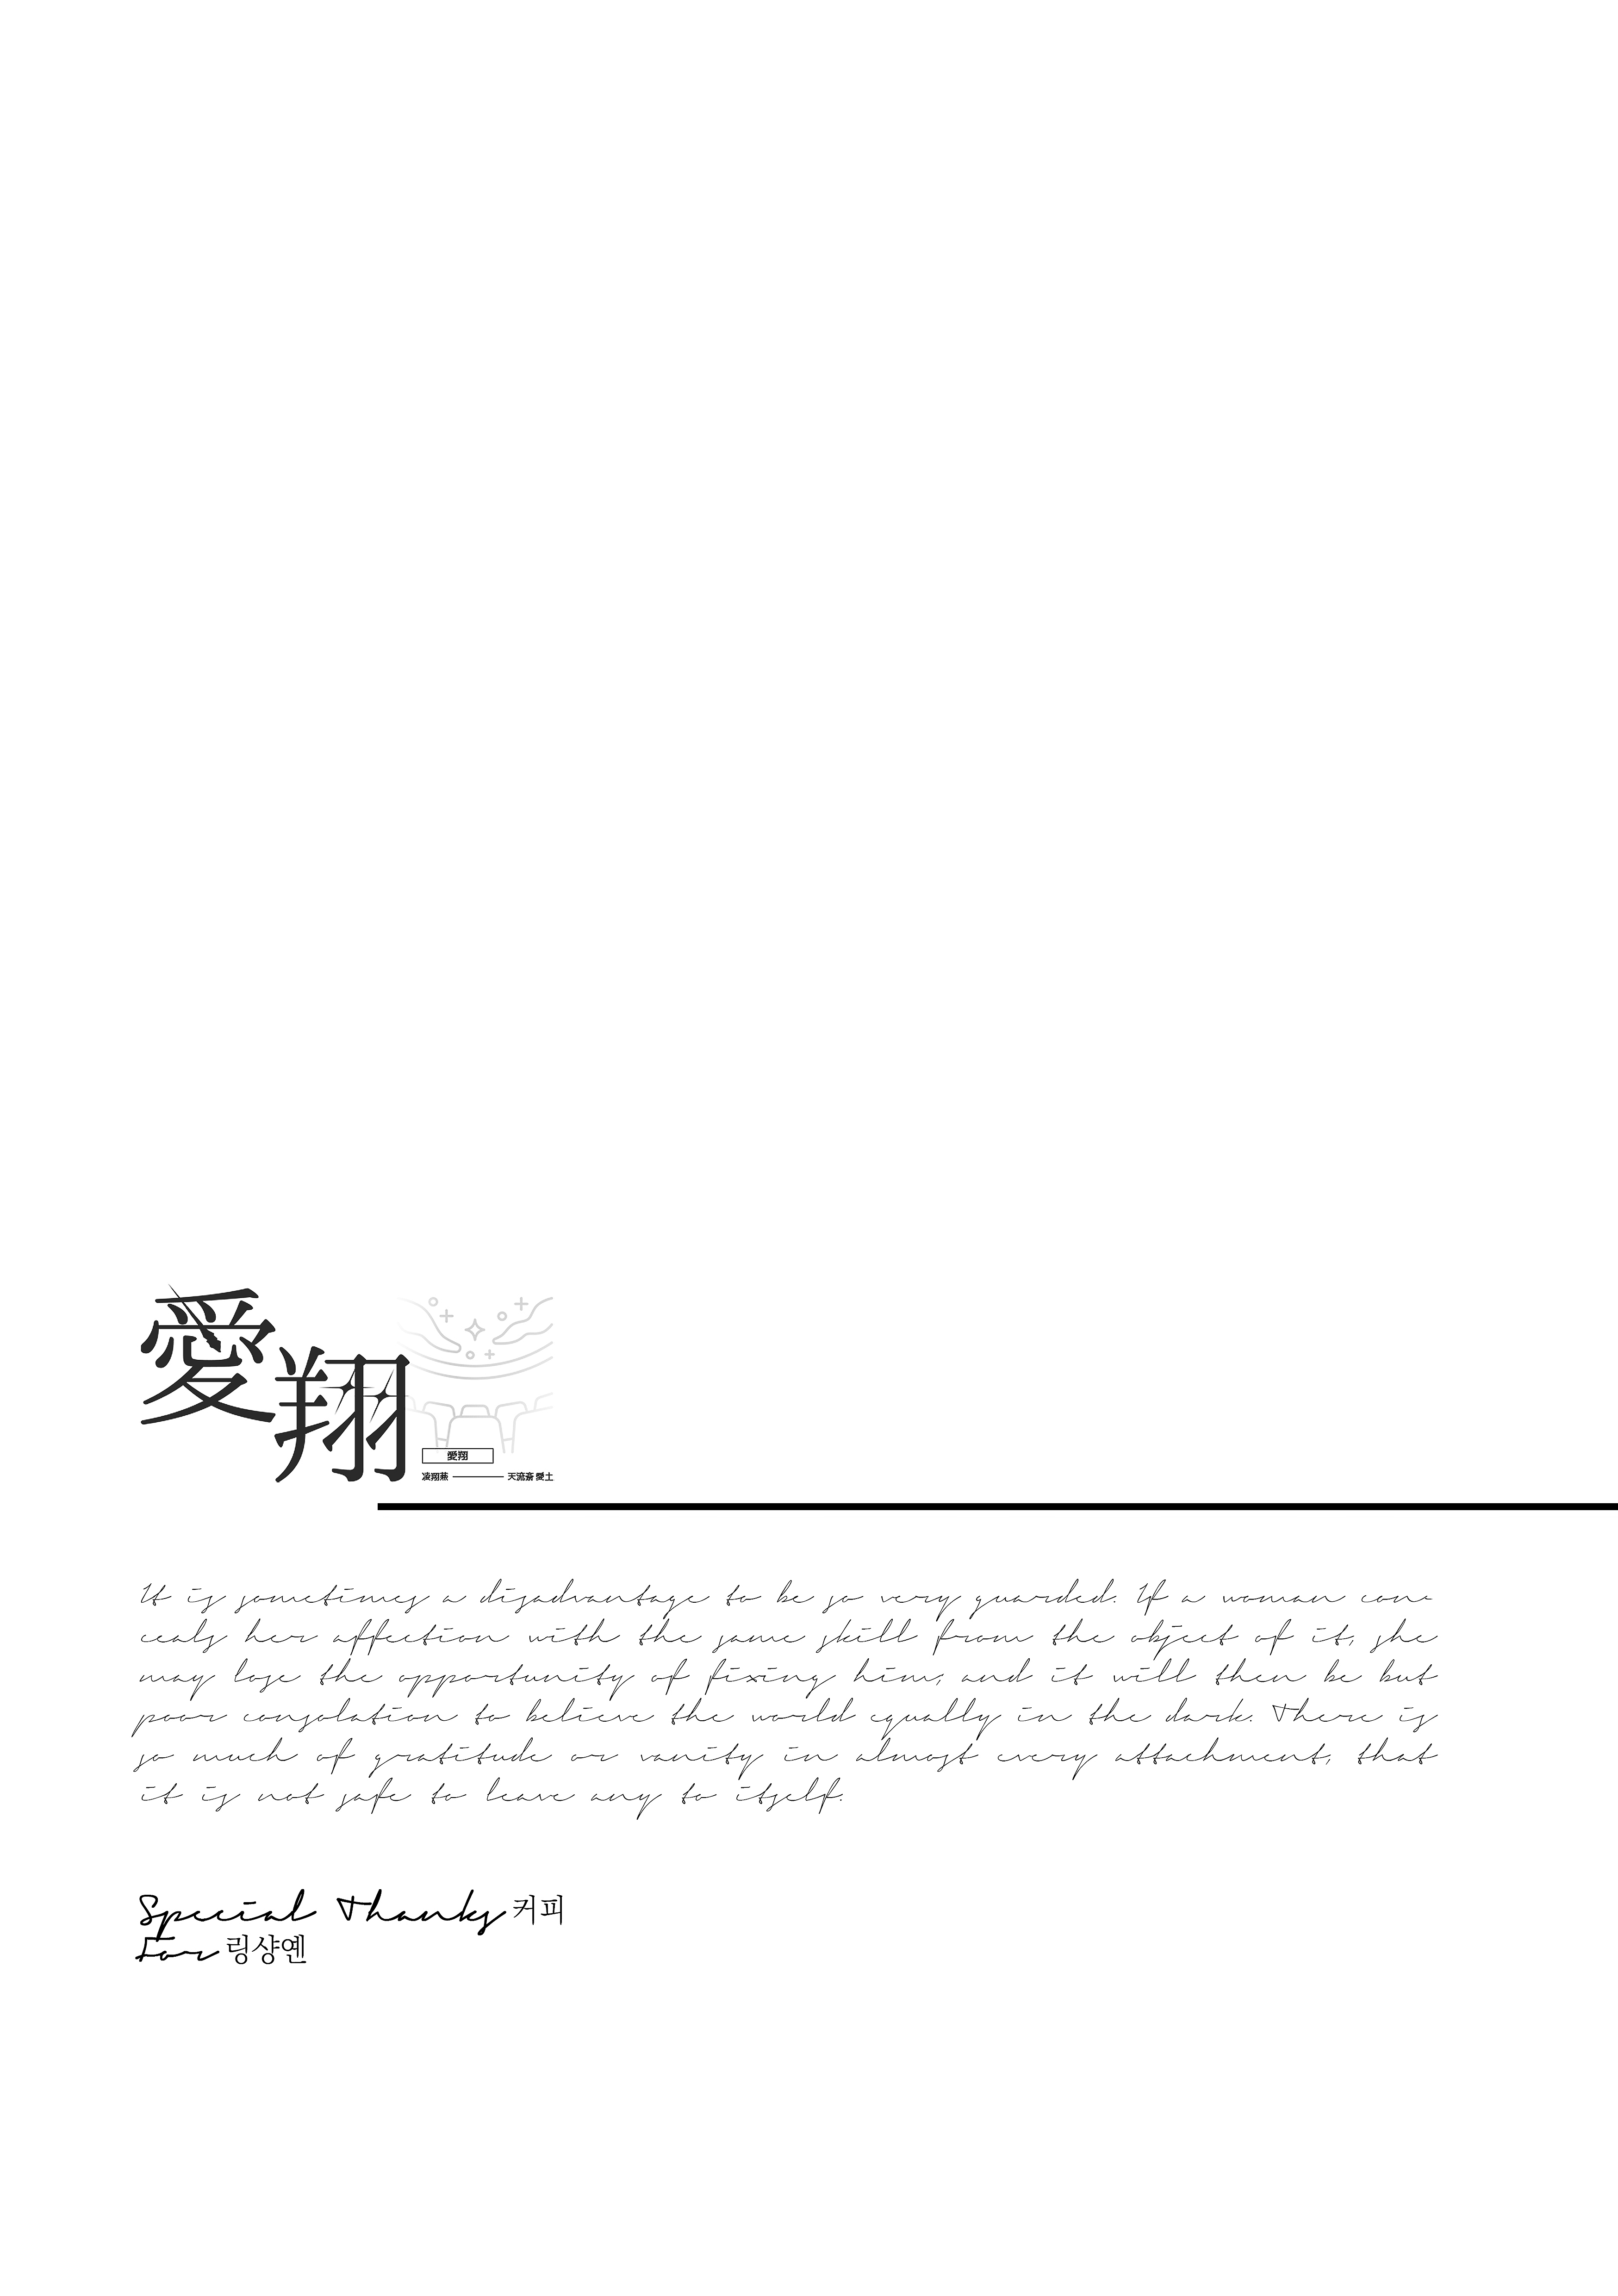 愛翔
愛翔
凌翔燕 天流斎 愛土
It is sometimes a disadvantage to be so very guarded. If a woman con-
ceals her affection with the same skill from the object of it, she
may lose the opportunity of fixing him; and it will then be but
poor consolation to believe the world equally in the dark. There is
so much of gratitude or vanity in almost every attachment, that
it is not safe to leave any to itself.
Special Thanks 커피
For 링샹옌